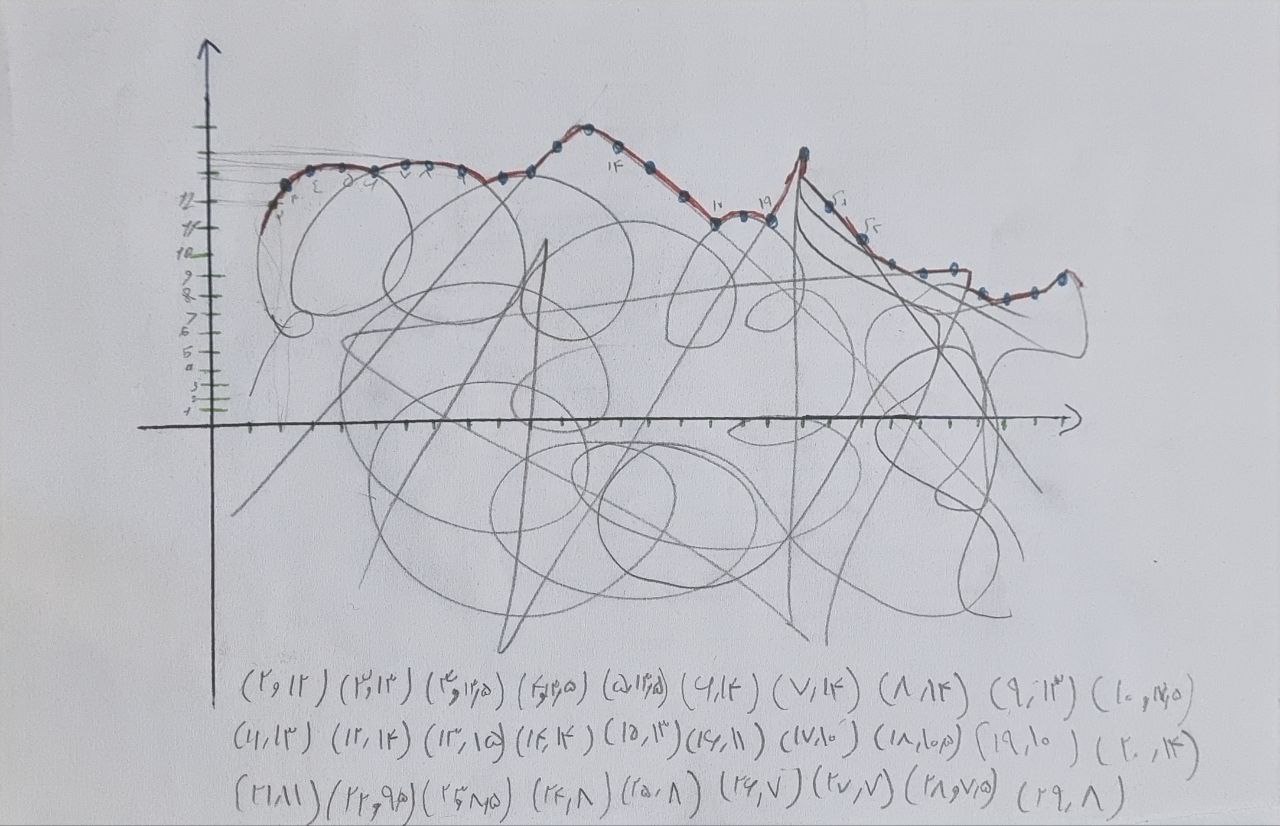 ۱۲
۱۱
10
9
8
7
6
5
3
2
1
۷
۹
۱۴
۱۹
(۲و۱۲) (۳و۱۳) (۳و۱۳٫۵) (۴و۱۳٫۵) (۵,۱۳٫۵) (۶,۱۴) (۷,۱۴) (۸,۱۴) (۹,۱۳) (۱۰و۱۲٫۵)
(۱۱,۱۳) (۱۲,۱۴) (۱۳,۱۵) (۱۴,۱۴) (۱۵,۱۳) (۱۶,۱۱) (۱۷,۱۰) (۱۸,۱۰٫۵) (۱۹,۱۰) (۲۰,۱۴)
(۲۱,۱۱) (۲۲و۹٫۵) (۲۳و۸٫۵) (۲۴,۸) (۲۵,۸) (۲۶,۷) (۲۷,۷) (۲۸و۷٫۵) (۲۹,۸)